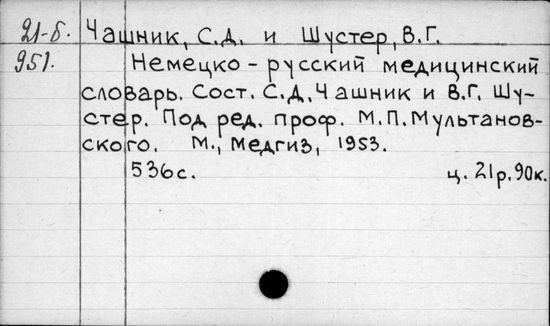 21-5. Чашник, С.Д. и Шустер, В.Г.
951. Немецко-русский медицинский
словарь. Сост. С.Д. Чашник и В.Г. Шу-
стер. Под ред. проф. М.П. Мультанов-
ского. М., Медгиз, 1953.
536с. ц. 21р. 90к.